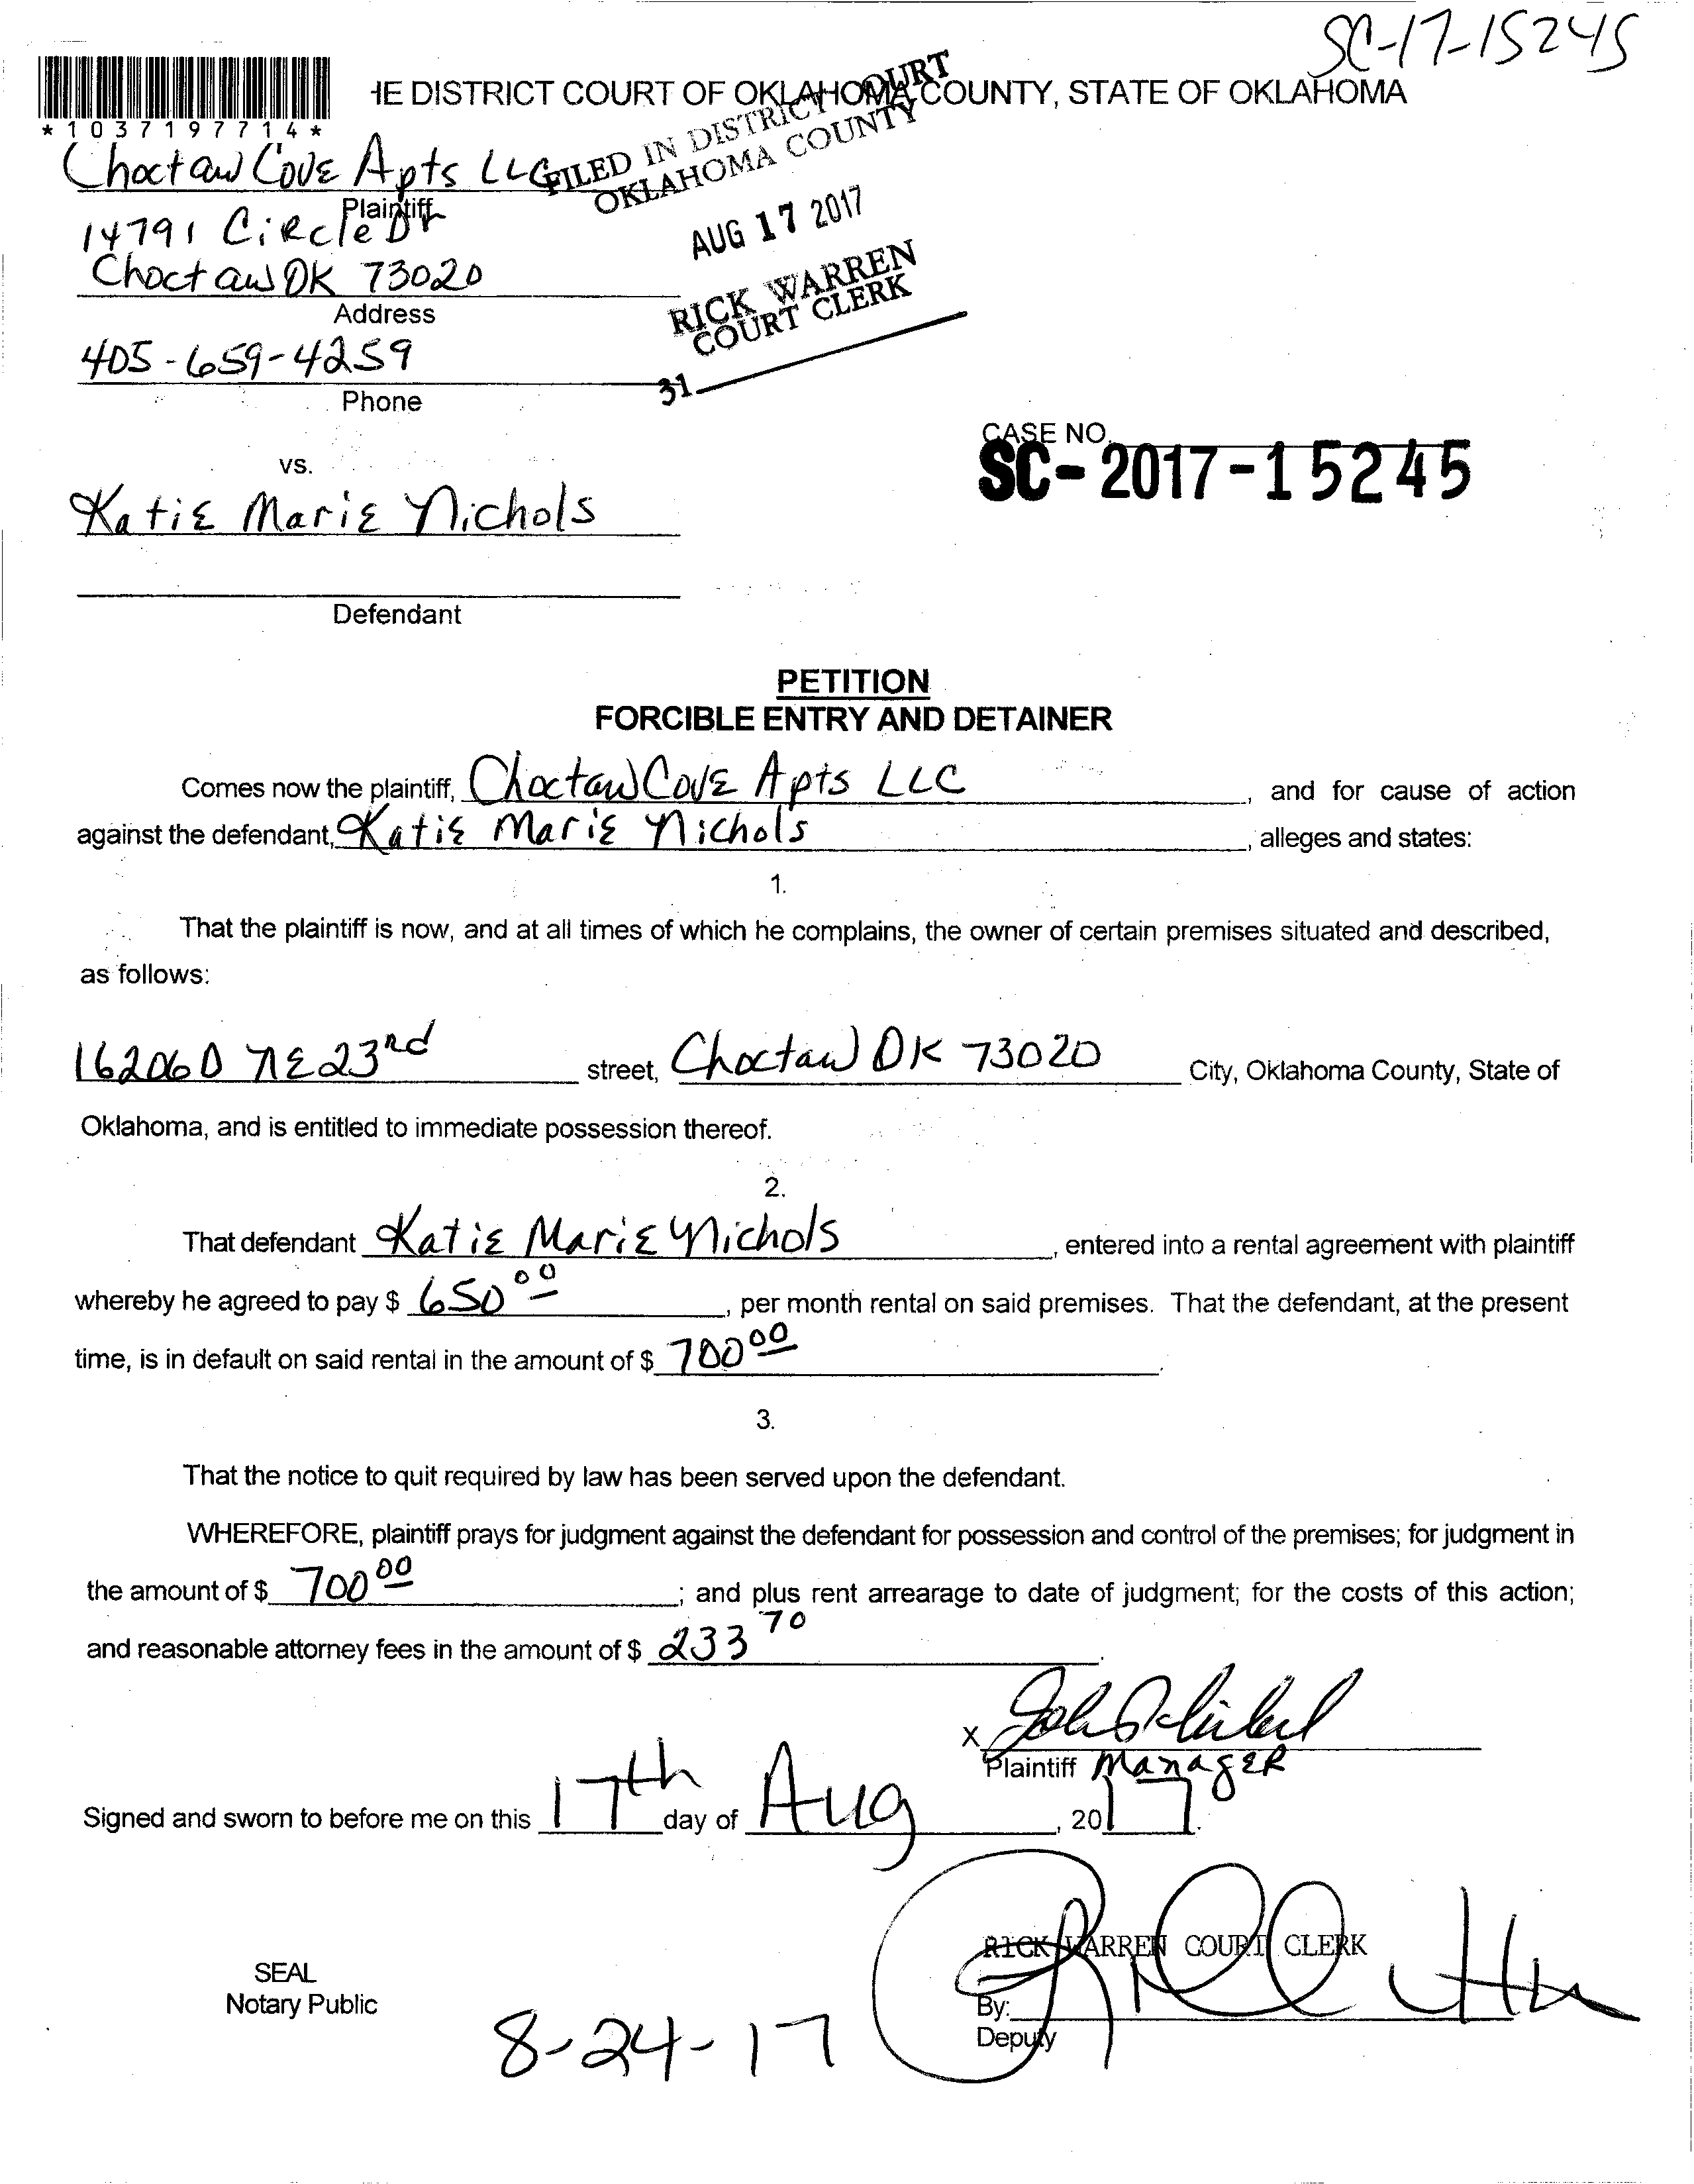 SC-17-15245
HE DISTRICT COURT OF OKLAHOMA COUNTY, STATE OF OKLAHOMA
*1037197714*
Choctaw Cove Apts LLC
Plaintiff
FILED IN DISTRICT COURT
OKLAHOMA COUNTY
14791 Circle Dr
AUG 17 2017
Choctaw OK 73020
Address
RICK WARREN
COURT CLERK
405-659-4259
Phone
31
CASE NO.
SC-2017-15245
vs.
Katie Marie Nichols
Defendant
PETITION
FORCIBLE ENTRY AND DETAINER
Comes now the plaintiff, Choctaw Cove Apts LLC, and for cause of action
against the defendant, Katie Marie Nichols, alleges and states:
1.
That the plaintiff is now, and at all times of which he complains, the owner of certain premises situated and described,
as follows:
16206D NE 23rd street, Choctaw OK 73020 City, Oklahoma County, State of
Oklahoma, and is entitled to immediate possession thereof.
2.
That defendant Katie Marie Nichols, entered into a rental agreement with plaintiff
whereby he agreed to pay $ 650 00, per month rental on said premises. That the defendant, at the present
time, is in default on said rental in the amount of $ 700 00.
3.
That the notice to quit required by law has been served upon the defendant.
WHEREFORE, plaintiff prays for judgment against the defendant for possession and control of the premises; for judgment in
the amount of $ 700 00; and plus rent arrearage to date of judgment; for the costs of this action;
and reasonable attorney fees in the amount of $ 233 70.
X
Plaintiff Manager
Signed and sworn to before me on this 17th day of Aug, 2017.
RICK WARREN COURT CLERK
SEAL
Notary Public
By:
Deputy
8-24-17